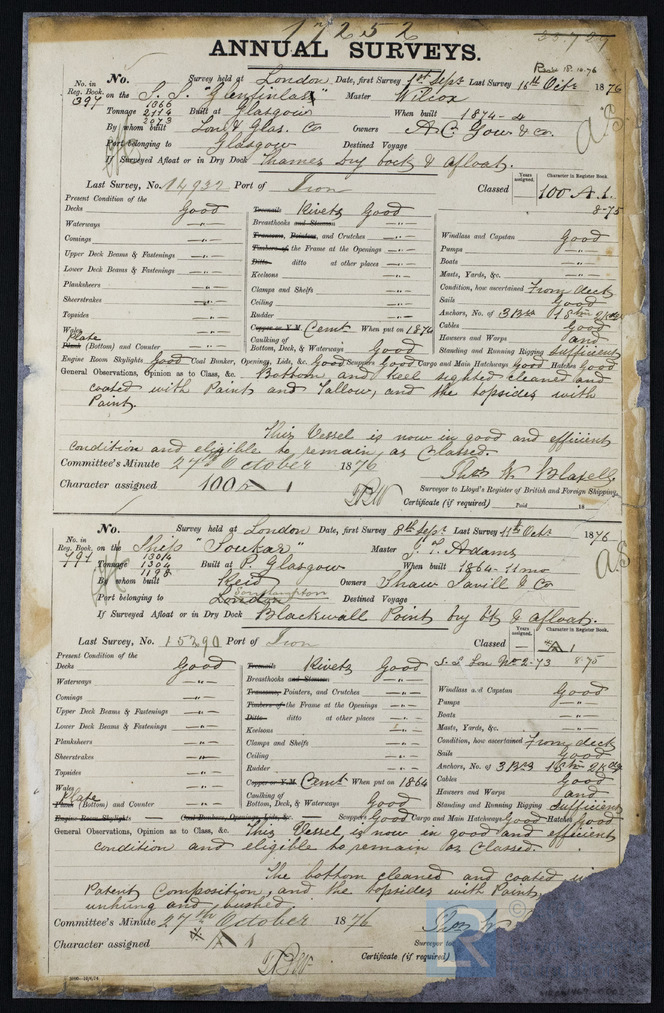 17252
ANNUAL SURVEYS.
No. in Reg. Book. 397
No. Survey held at London Date, first Survey 1st Sept Last Survey 16th Octr 1876
on the S.S. "Glenfinlas" Master Wilcox
1066
Tonnage 2114 Built at Glasgow When built 1874-4
2073
By whom built Lond & Glas. Co Owners A C Gow & Co.
Port belonging to Glasgow Destined Voyage
If Surveyed Afloat or in Dry Dock Thames Dry Dock & afloat.
Last Survey, No. 14932 Port of Iron Classed Years assigned. Character in Register Book. 100 A.1. 8-75
Present Condition of the
Decks Good Treenails Rivets Good
Waterways —"— Breasthooks and Stemson —"— Windlass and Capstan Good
Comings —"— Transoms, Pointers, and Crutches —"— Pumps —"—
Upper Deck Beams & Fastenings —"— Timbers of the Frame at the Openings —"— Boats —"—
Lower Deck Beams & Fastenings —"— Ditto ditto at other places —"— Masts, Yards, &c. —"—
Planksheers —"— Keelsons —"— Condition, how ascertained From deck
Sheerstrakes —"— Clamps and Shelfs —"— Sails Good
Topsides —"— Ceiling —"— Anchors, No. of 3 Brs 1 Stm 2 Kds
Wales —"— Rudder —"— Cables Good
Plate
Plank (Bottom) and Counter —"— Copper or Y.M. Cemt When put on 1874 Hawsers and Warps and
Caulking of Bottom, Deck, & Waterways Good Standing and Running Rigging sufficient
Engine Room Skylights Good Coal Bunker, Openings, Lids, &c. Good Scuppers Good Cargo and Main Hatchways Good Hatches Good
General Observations, Opinion as to Class, &c. Bottom and keel sighted cleaned and
coated with Paint and Tallow, and the topsides with
Paint.
This Vessel is now in good and efficient
condition and eligible to remain as Classed.
Committee's Minute 27th October 1876
Character assigned 100 A 1
Surveyor to Lloyd's Register of British and Foreign Shipping.
Certificate (if required) Paid 18
No. in Reg. Book. 791
No. Survey held at London Date, first Survey 8th Sept Last Survey 11th Oct 1876
on the Ship "Soukar" Master J. T. Adams
1304
Tonnage 1304 Built at P. Glasgow When built 1864-11mo
1198
By whom built Reid Owners Shaw Savill & Co
Port belonging to London Southampton Destined Voyage
If Surveyed Afloat or in Dry Dock Blackwall Point Dry Dk & afloat.
Last Survey, No. 15290 Port of Iron Classed Years assigned. Character in Register Book. A 1
S.S. Lon No 2-73 8-75
Present Condition of the
Decks Good Treenails Rivets Good
Waterways —"— Breasthooks and Stemson —"— Windlass and Capstan Good
Comings —"— Transoms, Pointers, and Crutches —"— Pumps —"—
Upper Deck Beams & Fastenings —"— Timbers of the Frame at the Openings —"— Boats —"—
Lower Deck Beams & Fastenings —"— Ditto ditto at other places —"— Masts, Yards, &c. —"—
Planksheers —"— Keelsons —"— Condition, how ascertained From deck
Sheerstrakes —"— Clamps and Shelfs —"— Sails Good
Topsides —"— Ceiling —"— Anchors, No. of 3 Brs 1 Stm 2 Kds
Wales —"— Rudder —"— Cables Good
Plate
Plank (Bottom) and Counter —"— Copper or Y.M. Cemt When put on 1864 Hawsers and Warps and
Caulking of Bottom, Deck, & Waterways Good Standing and Running Rigging sufficient
Engine Room Skylights — Coal Bunkers, Openings, Lids, &c. Scuppers Good Cargo and Main Hatchways Good Hatches Good
General Observations, Opinion as to Class, &c. This Vessel is now in good and efficient
condition and eligible to remain as Classed.
The bottom cleaned and coated wi
Patent Composition, and the topsides with Paint,
unhung and bushed.
Committee's Minute 27th October 1876
Character assigned A 1
Surveyor to
Certificate (if required)
LR
©